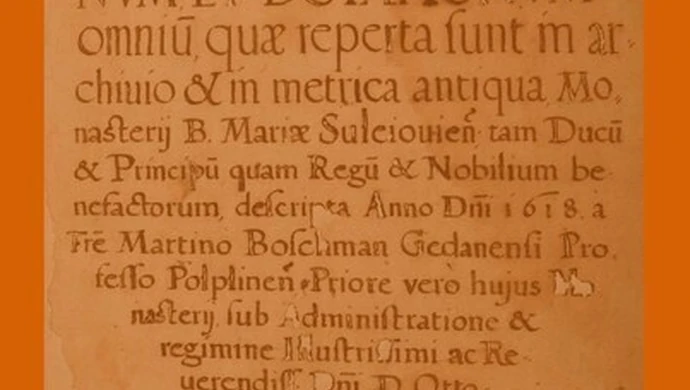 omniū, quæ reperta ſunt in ar-
chiuio & in metrica antiqua Mo,
naſterij B. Mariæ Suleiouień tam Ducū
& Principū quam Regū & Nobilium be
nefactorum, deſcripta Anno Dn̄i 1618. a
Frē Martino Boſchman Gedanenſi Pro,
feſſo Polplineń Priore verò hujus Mo
naſterij, ſub Adminiſtratione &
regimine Illuſtriſſimi ac Re-
uerendiſſ. Dn̄i D. Otto